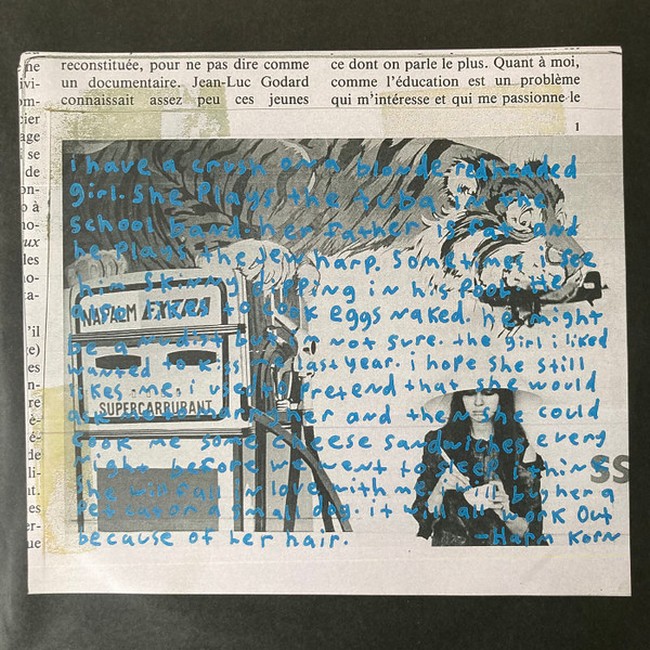 reconstituée, pour ne pas dire comme
un documentaire. Jean-Luc Godard
connaissait assez peu ces jeunes
ce dont on parle le plus. Quant à moi,
comme l'éducation est un problème
qui m'intéresse et qui me passionne le
1
i have a crush on a blonde redheaded
girl. She Plays the tuba in the
School band. her father is fat and
he Plays the Jew harp. Sometimes i see
him skinny dipping in his Pool. He
also likes to cook eggs naked. he might
be a nudist but im not sure. the girl i liked
wanted to kiss me last year. i hope she still
likes me. i used to Pretend that she would
ask me marry her and then she could
cook me some cheese sandwiches every
night before we went to sleep. i think
She will fall in love with me. i will buy her a
Pet cat or a small dog. it will all work Out
because of her hair.
-Harm Korn
NAPALM EXTRA
SUPERCARBURANT
SS
ne
ivi-
om-
cier
age
i se
de
on-
o à
no-
aux
les
no-
ta-
'il
e)
es
n-
re
è-
é-
de
li-
nt.
es
er-
ue